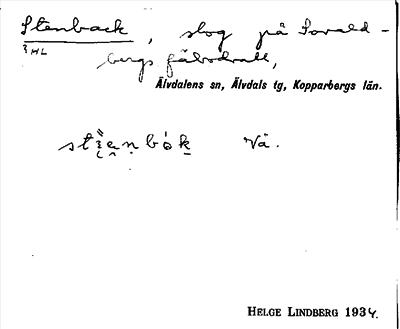 Stenback, slog på Lovald-
bergs fäbodvall,
? HL
Älvdalens sn, Älvdals tg, Kopparbergs län.
Vä.
HELGE LINDBERG 1934.